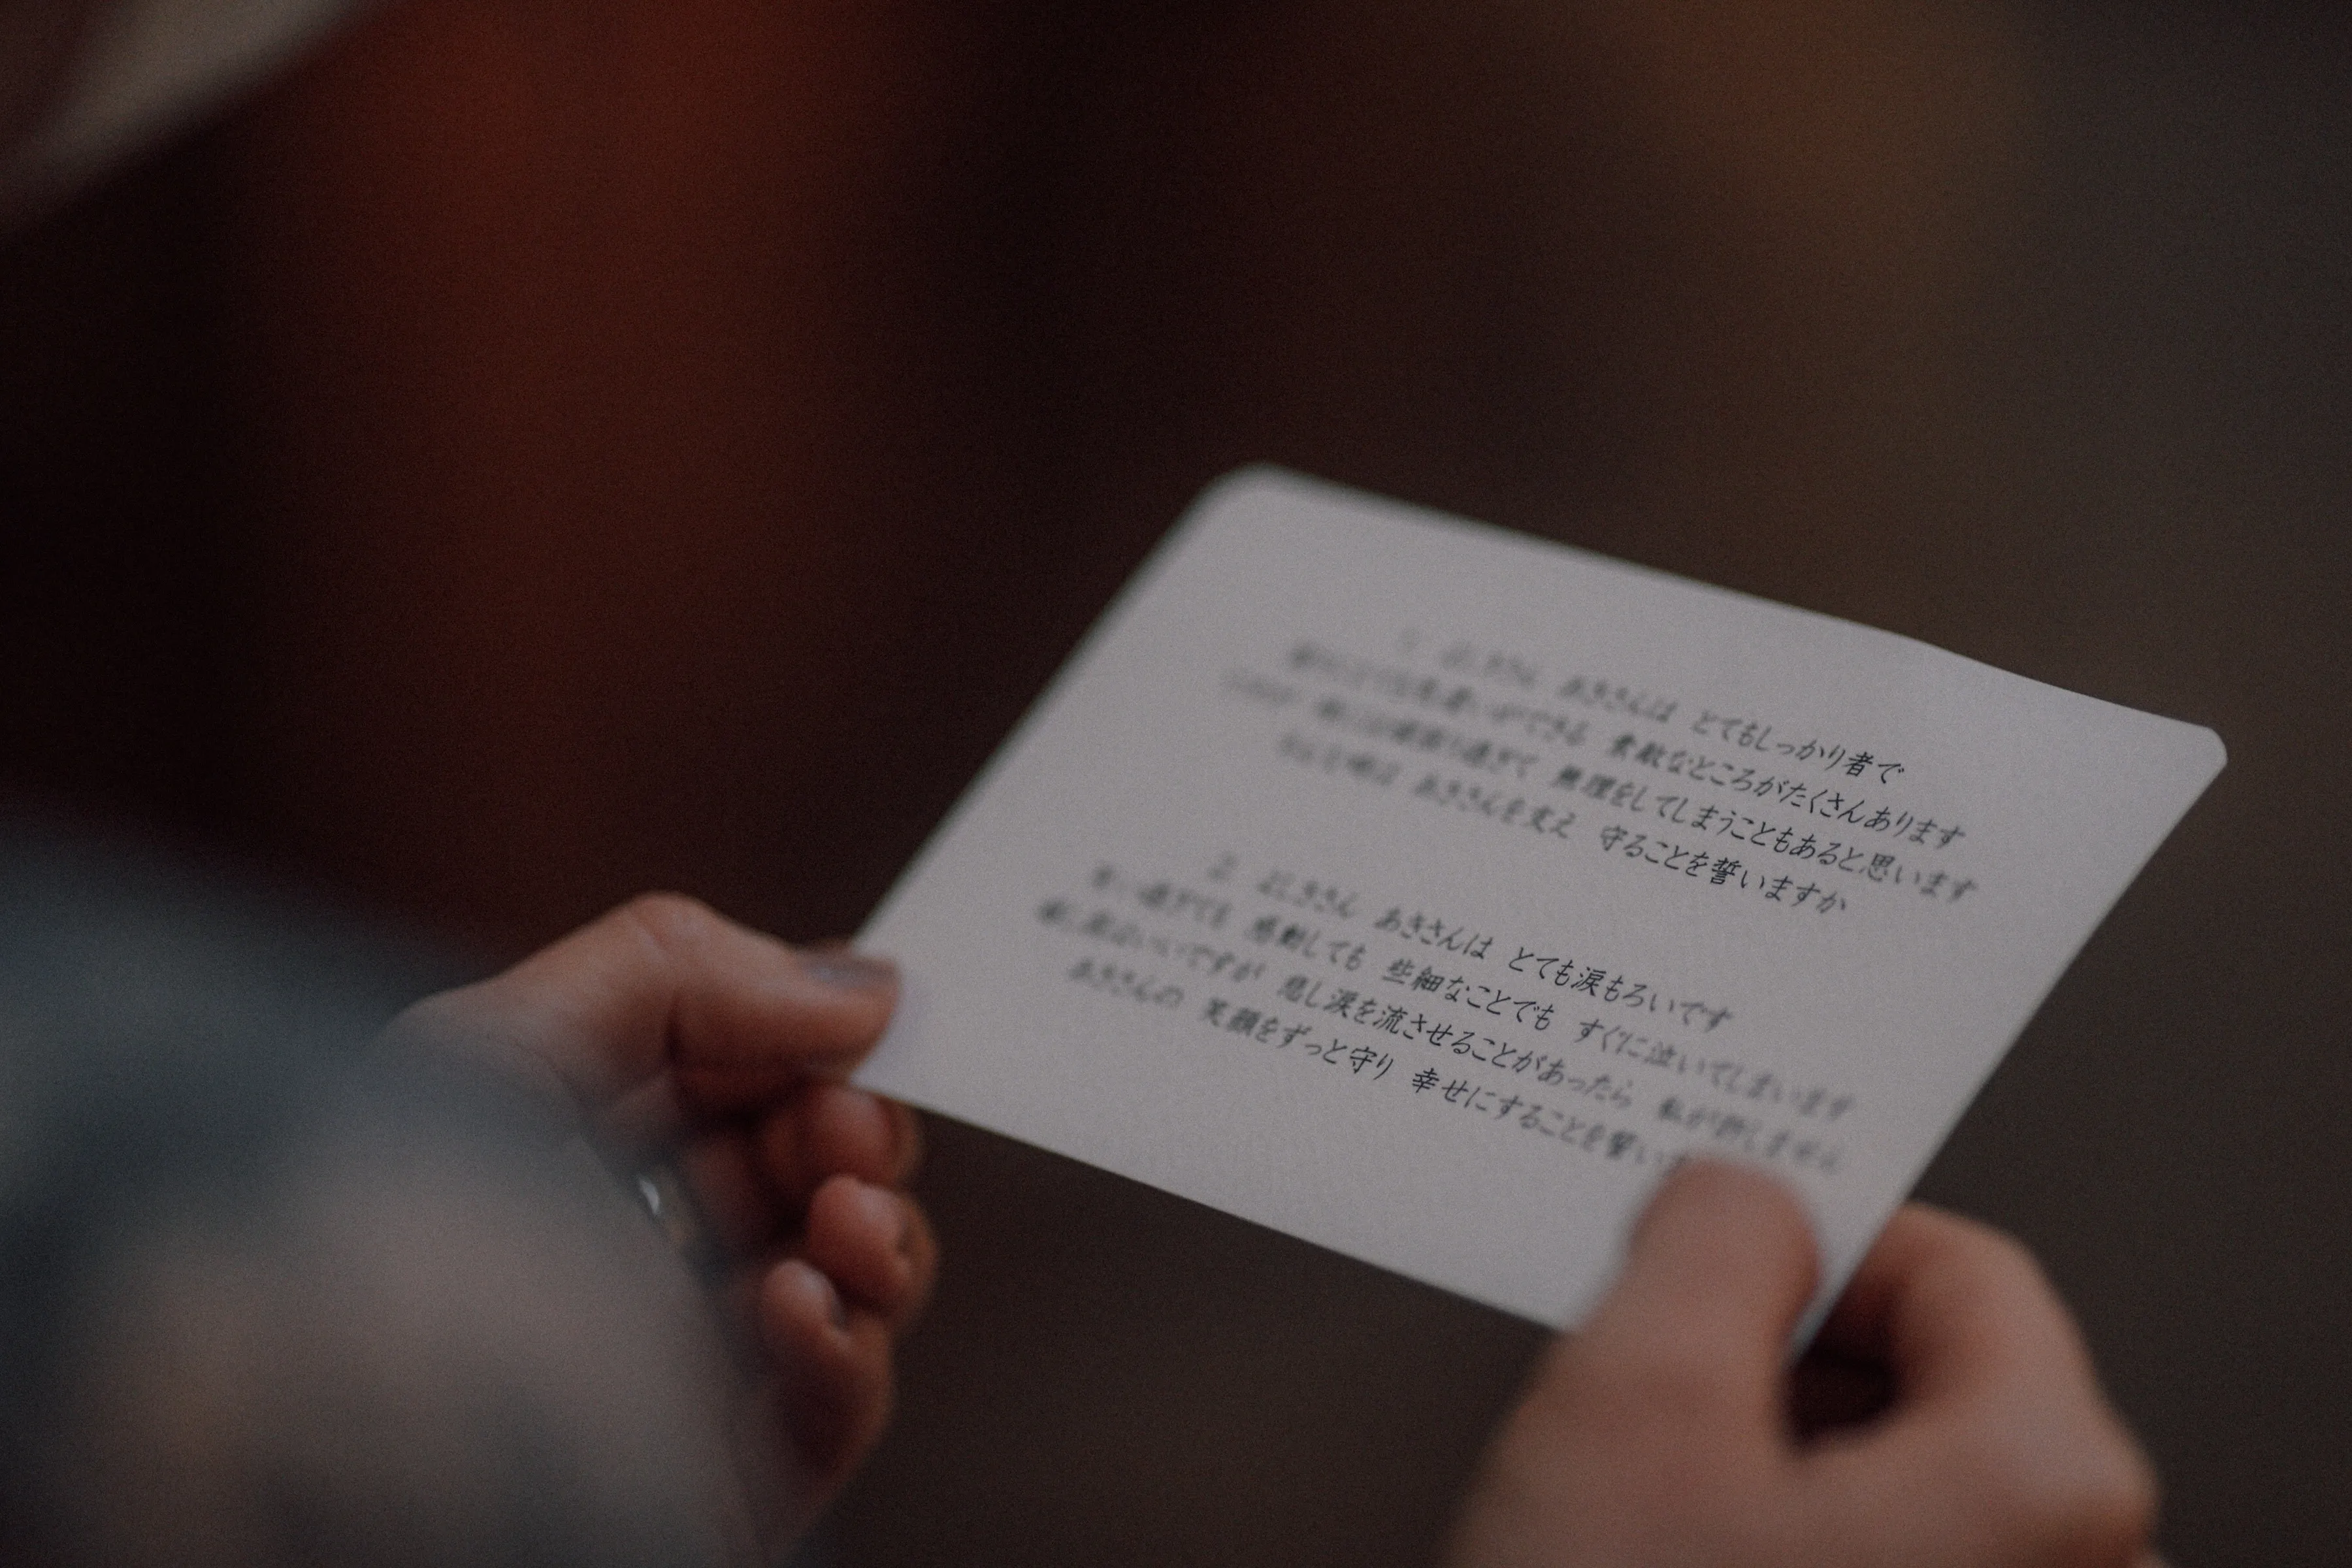 あきさんは とてもしっかり者で
ができる 素敵なところがたくさんあります
過ぎて 無理をしてしまうこともあると思います
あきさんを支え 守ることを誓いますか
2 あきさんは とても涙もろいです
過ぎても 感動しても 些細なことでも すぐに泣いてしまいます
いいですが 悲し涙を流させることがあったら 私が許しません
あきさんの 笑顔をずっと守り 幸せにすることを誓い